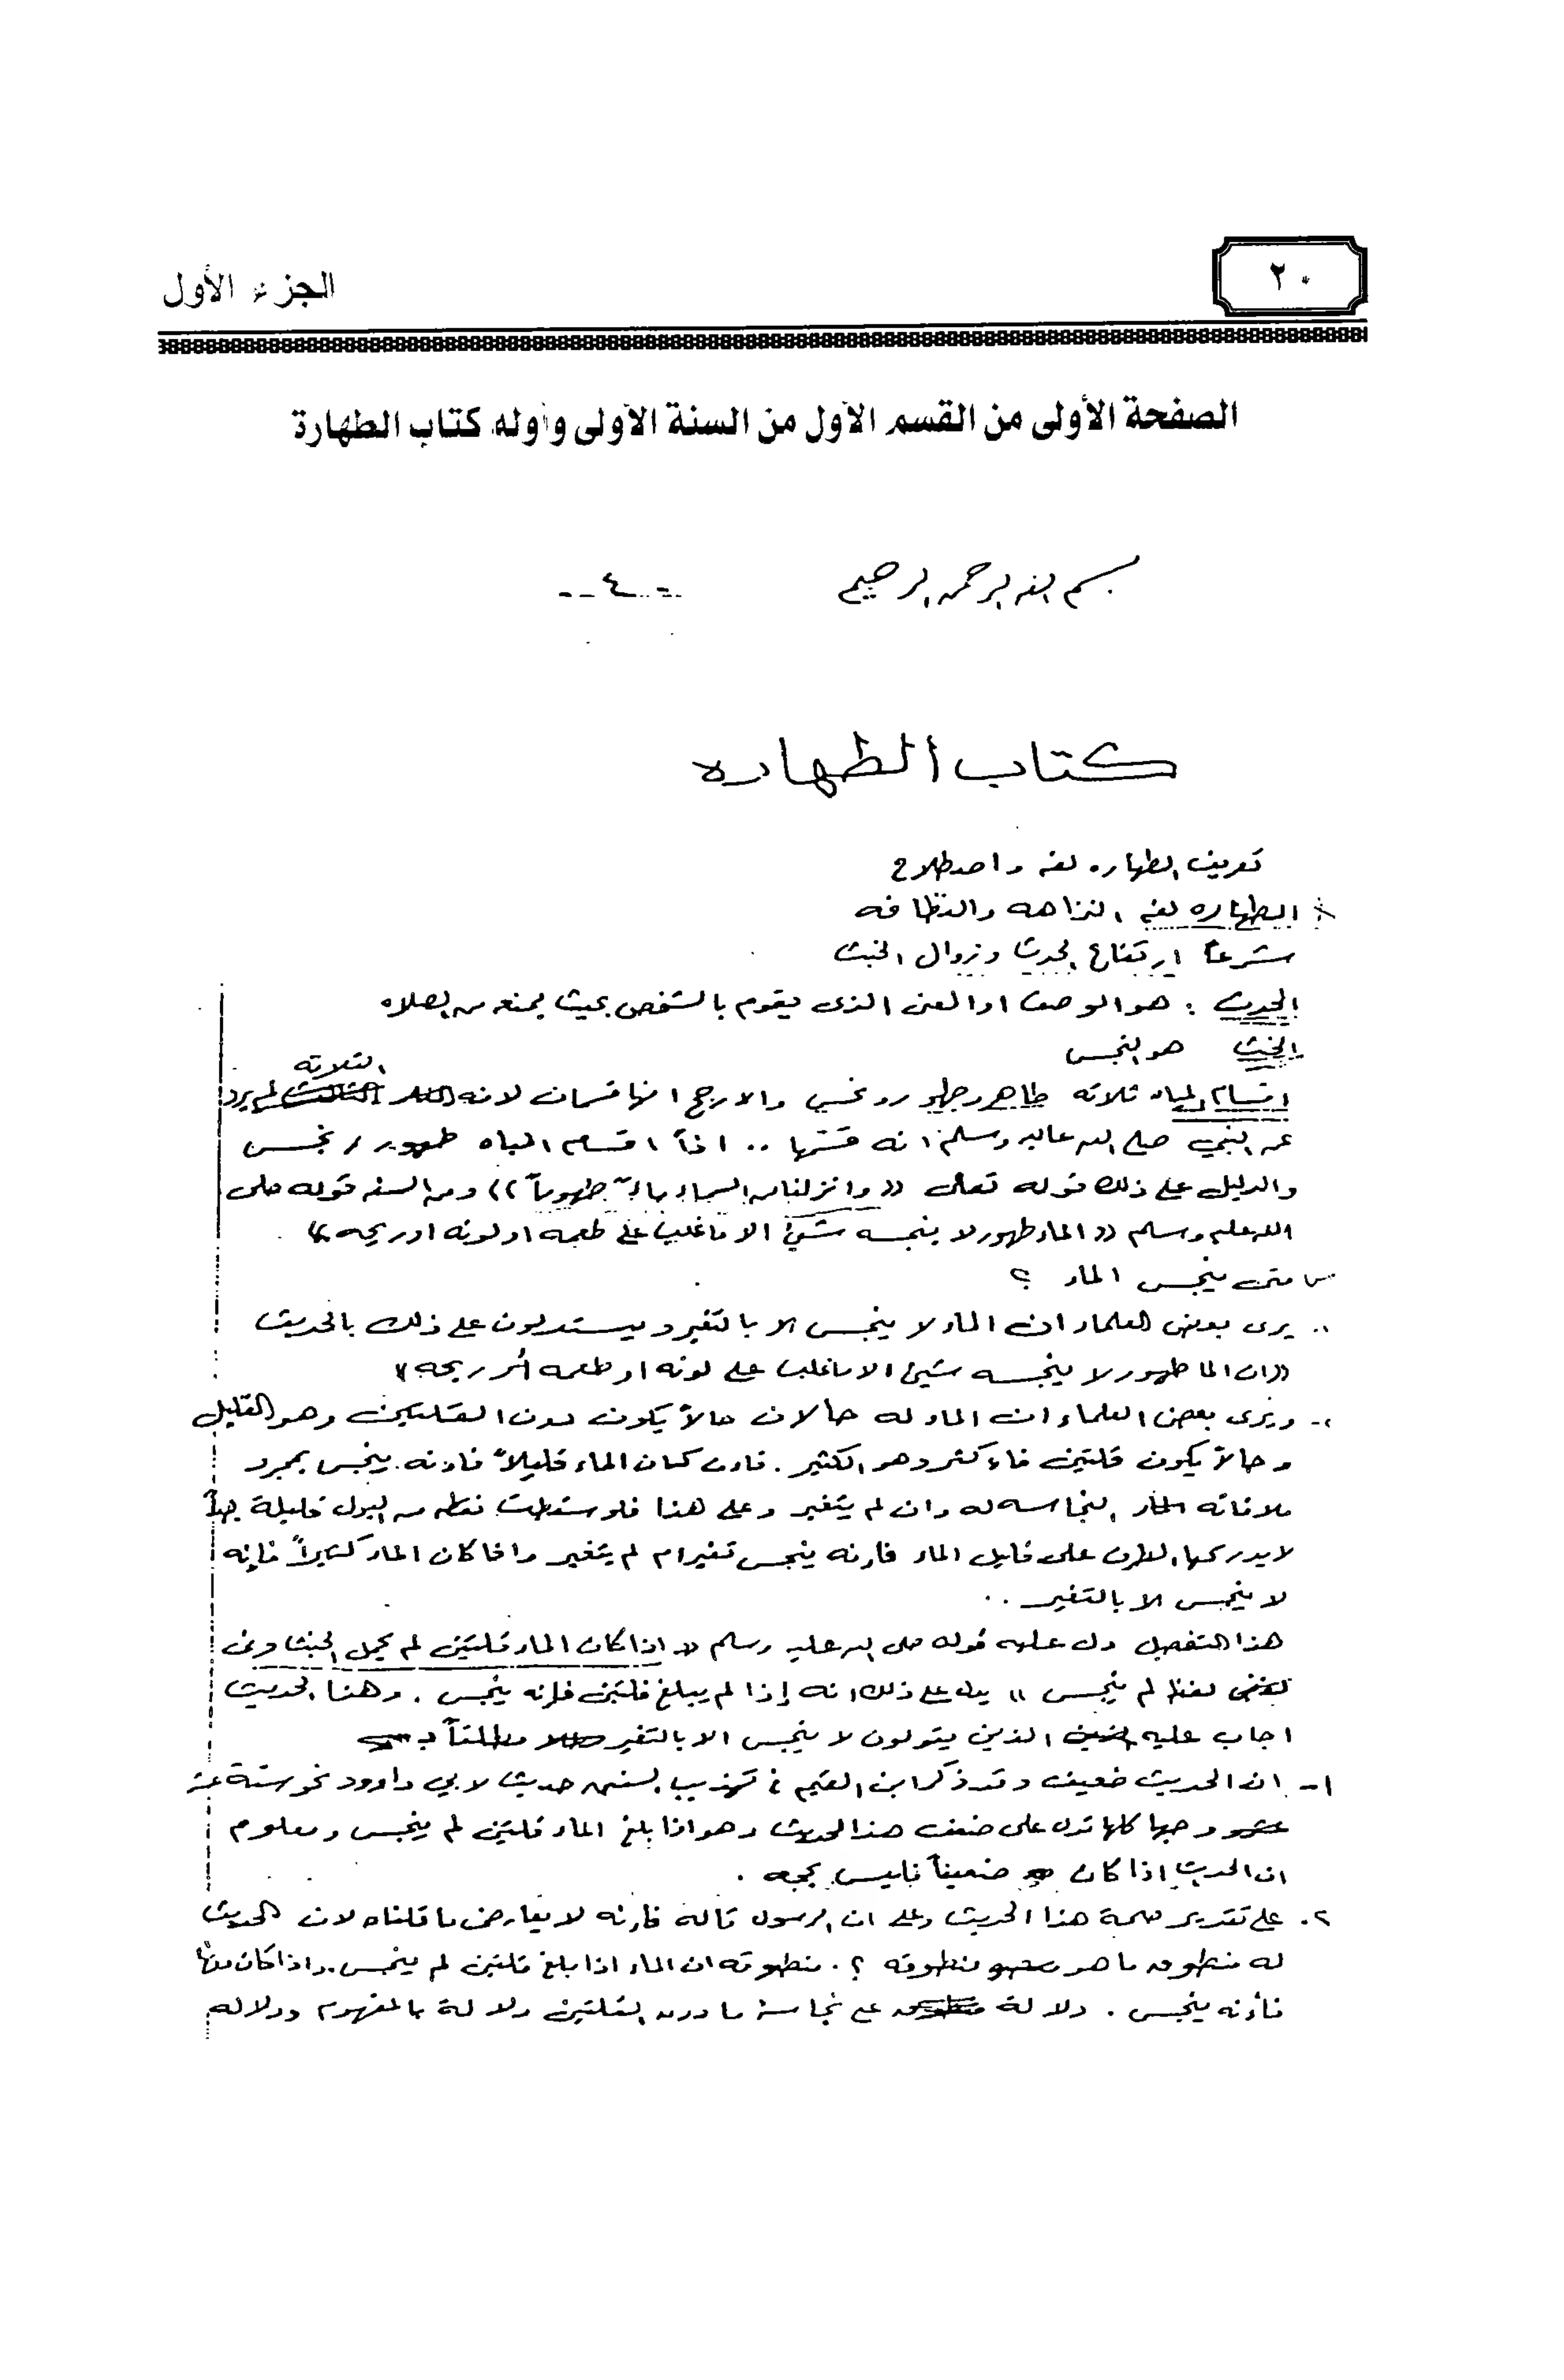 ٢٠
الجزء الأول
الصفحة الأولى من القسم الأول من السنة الأولى وأوله كتاب الطهارة
بسم الله الرحمن الرحيم
- ٤ -
كتاب الطهاره
تعريف الطهاره لغه واصطلاح
الطهاره لغه النزاهه والنظافه
شرعاً ارتفاع الحدث وزوال الخبث
الحدث : هو الوصف او المعنى الذى يقوم بالشخص بحيث يمنعه من الصلاه
الخبث هو النجس
الثلاثه
اقسام المياه ثلاثه طاهر وطهور ونجس والارجح انها قسمان لانه لم يرد
عن النبي صلى الله عليه وسلم انه قسمها .. اذاً اقسام المياه طهور / نجس
والدليل على ذلك قوله تعالى (( وانزلنا من السماء ماءً طهوراً )) ومن السنه قوله صلى
الله عليه وسلم (( الماء طهور لا ينجسه شيئ الا ما غلب على طعمه او لونه او ريحه ))
س متى ينجس الماء ؟
١- يرى بعض العلماء ان الماء لا ينجس الا بالتغير ويستدلون على ذلك بالحديث
((ان الما طهور لا ينجسه شيئ الا ما غلب على لونه او طعمه أو ريحه ))
٢- ويرى بعض العلماء ان الماء له حالان حالاً يكون دون القلتين وهو القليل
وحالاً يكون قلتين فاء كثر وهو الكثير . فان كان الماء قليلاً فانه ينجس بمجرد
ملاقاته النجاسه له وان لم يتغير وعلى هذا فلو سقطت نقطه من البول قليلة جداً
لا يدركها الطرف على قليل الماء فانه ينجس تغير ام لم يتغير واذا كان الماء كثيراً فإنه
لا ينجس الا بالتغير ..
هذا التفصيل دل عليه قوله صلى الله عليه وسلم (( اذا كان الماء قلتين لم يحمل الخبث وفى
لفظ لم ينجس )) يدل على ذلك انه إذا لم يبلغ قلتين فإنه ينجس . وهذا الحديث
اجاب عليه الذين يقولون لا ينجس الا بالتغير مطلقاً بـ
١- ان الحديث ضعيف وقد ذكر ابن القيم في تهذيب السنن حديث لابي داوود نحو ستة عشر
وجها كلها تدل على ضعف هذا الحديث وهو اذا بلغ الماء قلتين لم ينجس ومعلوم
ان الحديث اذا كان ضعيفاً فليس بحجه .
٢- على تقدير صحة هذا الحديث وعلى ان الرسول قاله فانه لا يعارض ما قلناه لان الحديث
له منطوق ما هو منطوقه ؟. منطوقه ان الماء اذا بلغ قلتين لم ينجس. واذا كان دونها
فأنه ينجس . دلالة على نجاسة ما دون القلتين دلالة بالمفهوم ودلاله